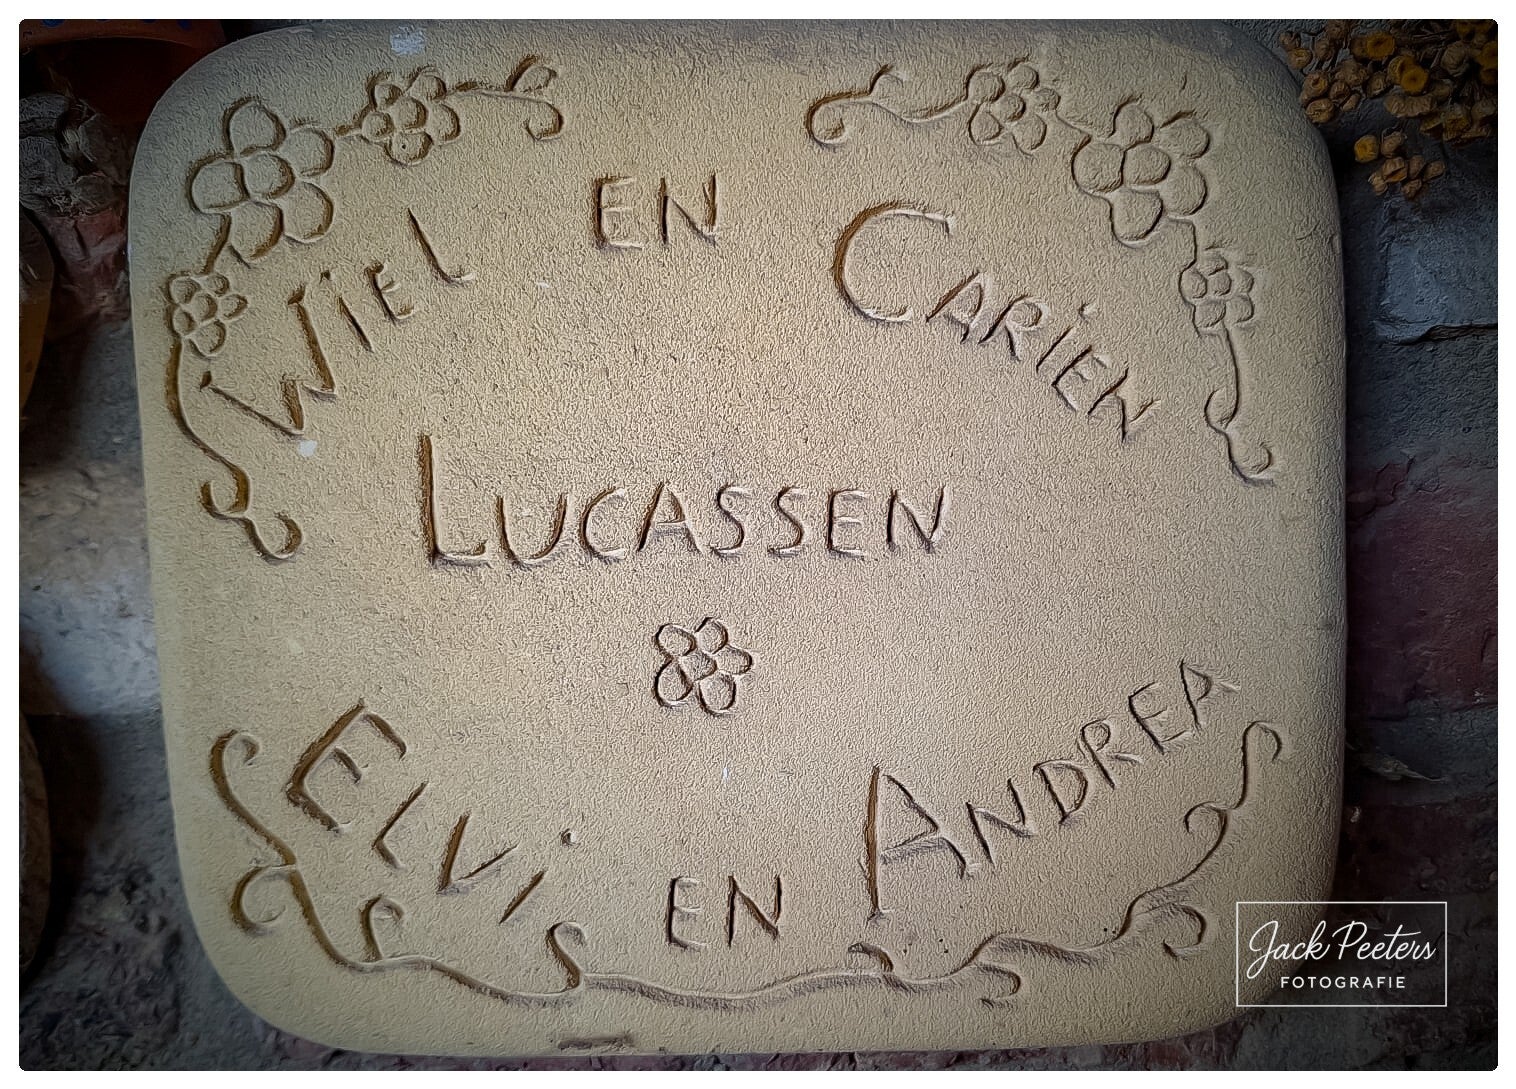 Wiel en Carien
Lucassen
Elvis en Andrea
Jack Peeters
FOTOGRAFIE